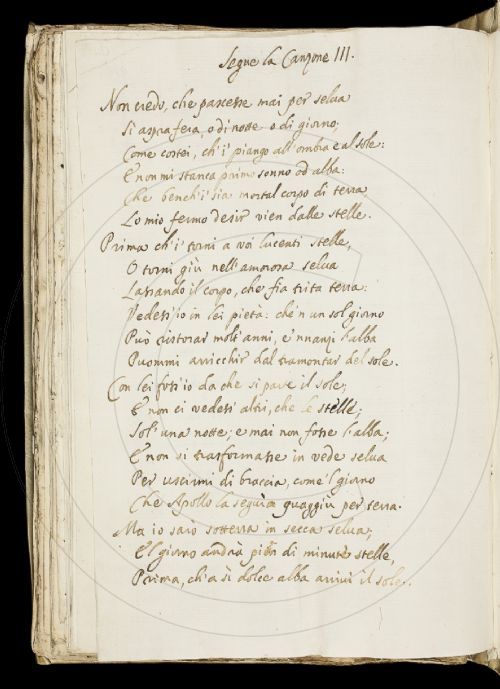 Segue la Canzone III.
Non credo, che pascesse mai per selva
Si aspra fera, o di notte o di giorno;
Come costei, ch'i' piango all' ombra e al sole:
E non mi stanca primo sonno od alba:
Che bench'i' sia mortal corpo di terra,
Lo mio fermo desir vien dalle stelle.
Prima ch'i' torni a voi lucenti stelle,
O torni giù nell'amorosa selva
Lassando il corpo, che fia trita terra:
Vedess'io in lei pietà: che'n un sol giorno
Può ristorar molt'anni, e'nnanzi l'alba
Puommi arricchir dal tramontar del sole.
Con lei foss'io da che si parte il sole;
E non ci vedess' altri, che le stelle;
Sol' una notte; e mai non fosse l'alba;
E non si trasformasse in verde selva
Per uscirmi di braccia, come'l giorno
Che Apollo la seguia quaggiù per terra.
Ma io sarò sotterra in secca selva;
E'l giorno andrà pien di minute stelle,
Prima, ch'a sì dolce alba arrivi il sole.